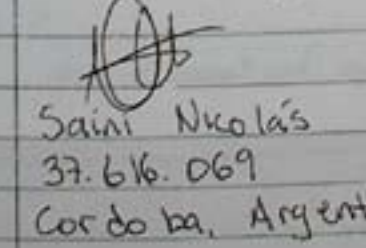 Saini Nicolás
37.616.069
Cordoba, Argent